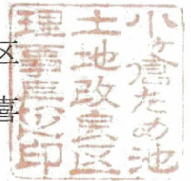 小ヶ倉ため池
土地改良区
理事長之印
区